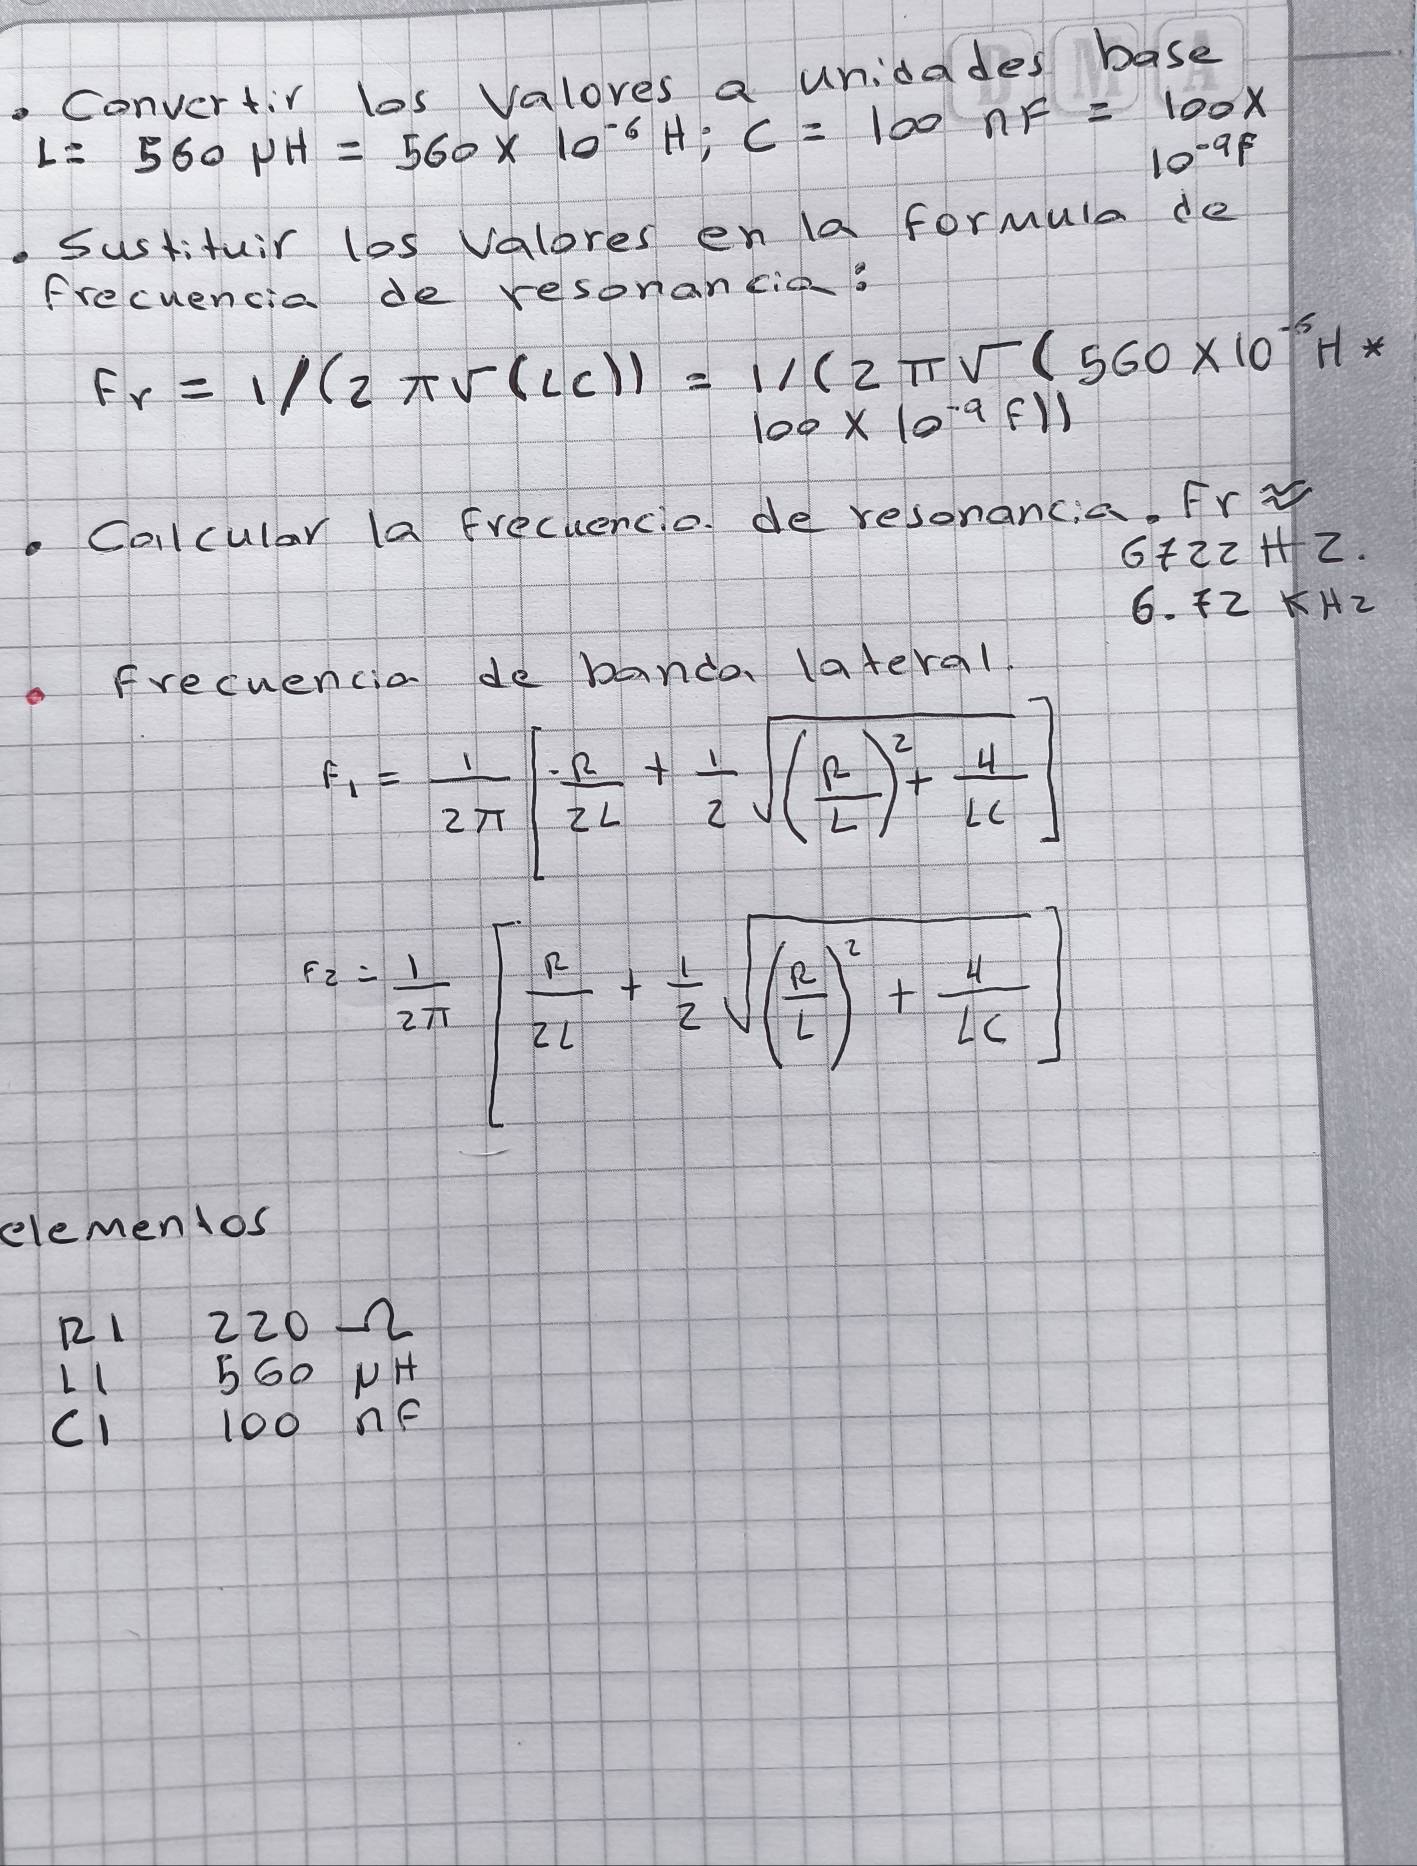 • Convertir los valores a unidades base
L = 560 µH = 560 x 10⁻⁶ H; C = 100 nF = 100x
10⁻⁹F
• Sustituir los valores en la formula de
frecuencia de resonancia:
Fr = 1/(2π√(LC)) = 1/(2π√(560x10⁻⁶H *
100 x 10⁻⁹ F))
• Calcular la frecuencia de resonancia. Fr ≈
6722 HZ.
6.72 KHz
• Frecuencia de banda lateral.
F₁ = 1/2π [-R/2L + 1/2 √((R/L)² + 4/LC)]
F2 = 1/2π [R/2L + 1/2 √((R/L)² + 4/LC)]
elementos
R1 220 Ω
L1 560 µH
C1 100 nF